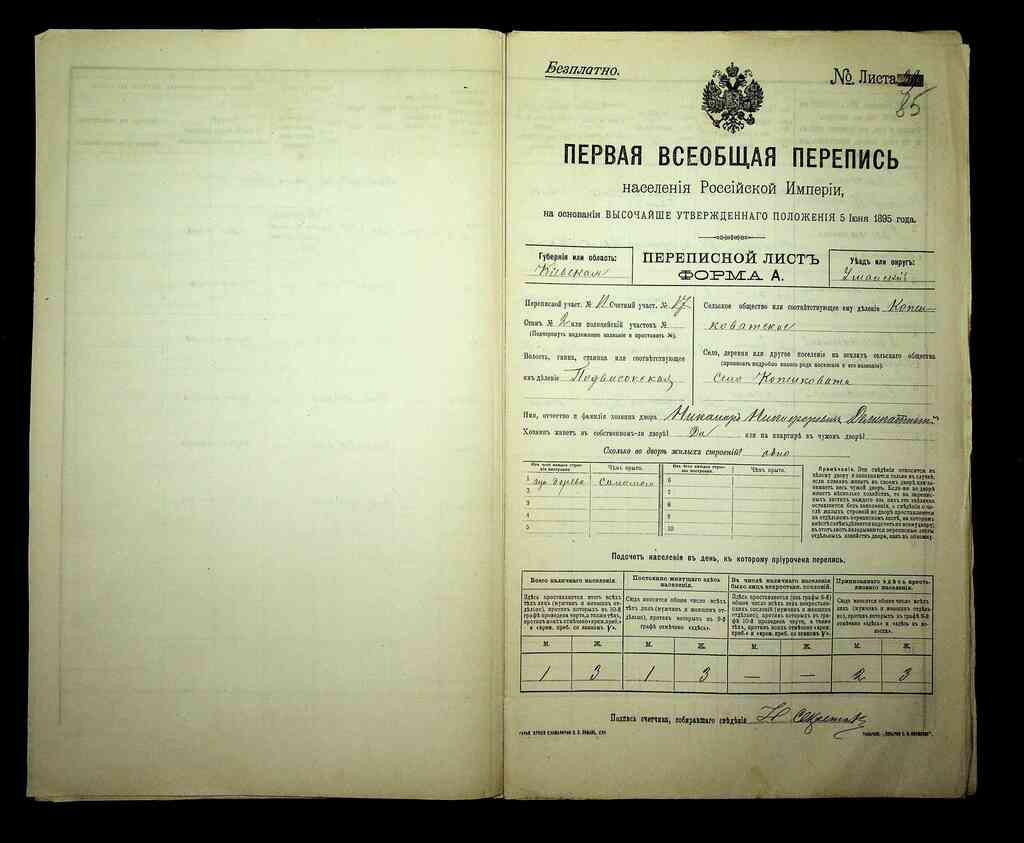 Безплатно.
№ Листа
85
ПЕРВАЯ ВСЕОБЩАЯ ПЕРЕПИСЬ
населенія Россійской Имперіи,
на основаніи ВЫСОЧАЙШЕ УТВЕРЖДЕННАГО ПОЛОЖЕНІЯ 5 Іюня 1895 года.
Губернія или область:
Кіевская
ПЕРЕПИСНОЙ ЛИСТЪ
ФОРМА А.
Уѣздъ или округъ:
Уманскій
Переписной участ. № 11 Счетный участ. № 17
Станъ № 2 или полицейскій участокъ №
(Подчеркнуть надлежащее названіе и проставить №).
Волость, гмина, станица или соотвѣтствующее
имъ дѣленіе Подвысокская
Сельское общество или соотвѣтствующее ему дѣленіе
коватское
Село, деревня или другое поселеніе на земляхъ сельскаго общества
(прописать подробно какого рода поселеніе и его названіе):
Село
Имя, отчество и фамилія хозяина двора Никаноръ Никифоровичъ
Хозяинъ живетъ въ собственномъ-ли дворѣ? Да или на квартирѣ въ чужомъ дворѣ?
Сколько во дворѣ жилыхъ строеній? одно
Изъ чего каждое строеніе построено.
Чѣмъ крыто.
Изъ чего каждое строеніе построено.
Чѣмъ крыто.
1 изъ дерева соломою 6
2 7
3 8
4 9
5 10
Примѣчаніе. Эти свѣдѣнія относятся къ
цѣлому двору и заполняются только въ случаѣ,
если хозяинъ живетъ въ своемъ дворѣ или занимаетъ
весь чужой дворъ. Если-же во дворѣ
живетъ нѣсколько хозяйствъ, то на переписныхъ
листахъ каждаго изъ нихъ эти свѣдѣнія
оставляются безъ заполненія, а свѣдѣнія о числѣ
жилыхъ строеній во дворѣ проставляются
на отдѣльномъ переписномъ листѣ, на которомъ
Подсчетъ населенія въ день, къ которому пріурочена перепись.
Всего наличнаго населенія.
Постоянно живущаго здѣсь населенія.
Въ числѣ наличнаго населенія было лицъ некрестьян. сословій.
Приписаннаго здѣсь крестьянскаго населенія.
Здѣсь проставляется итогъ всѣхъ
тѣхъ лицъ (мужчинъ и женщинъ отдѣльно),
противъ которыхъ въ 10-й
графѣ проведена черта, а также тѣхъ,
противъ коихъ отмѣчено «врем. преб.»
и «врем. преб. со знакомъ V».
Сюда вносится общее число всѣхъ
тѣхъ лицъ (мужчинъ и женщинъ отдѣльно),
противъ которыхъ въ 9-й
графѣ отмѣчено «здѣсь».
Здѣсь проставляется (изъ графы 6-й)
общее число всѣхъ лицъ некрестьянскихъ
сословій (мужчинъ и женщинъ
отдѣльно), противъ которыхъ въ графѣ
10-й проведена черта, а также
тѣхъ, противъ коихъ отмѣчено «врем.
преб.» и «врем. преб. со знакомъ V».
Сюда вносится общее число всѣхъ
лицъ (мужчинъ и женщинъ отдѣльно),
противъ которыхъ въ графѣ 8-й
отмѣчено «здѣсь» и «здѣсь въ волости».
М. Ж. М. Ж. М. Ж. М. Ж.
1 3 1 3 — — 2 3
Подпись счетчика, собиравшаго свѣдѣнія Н